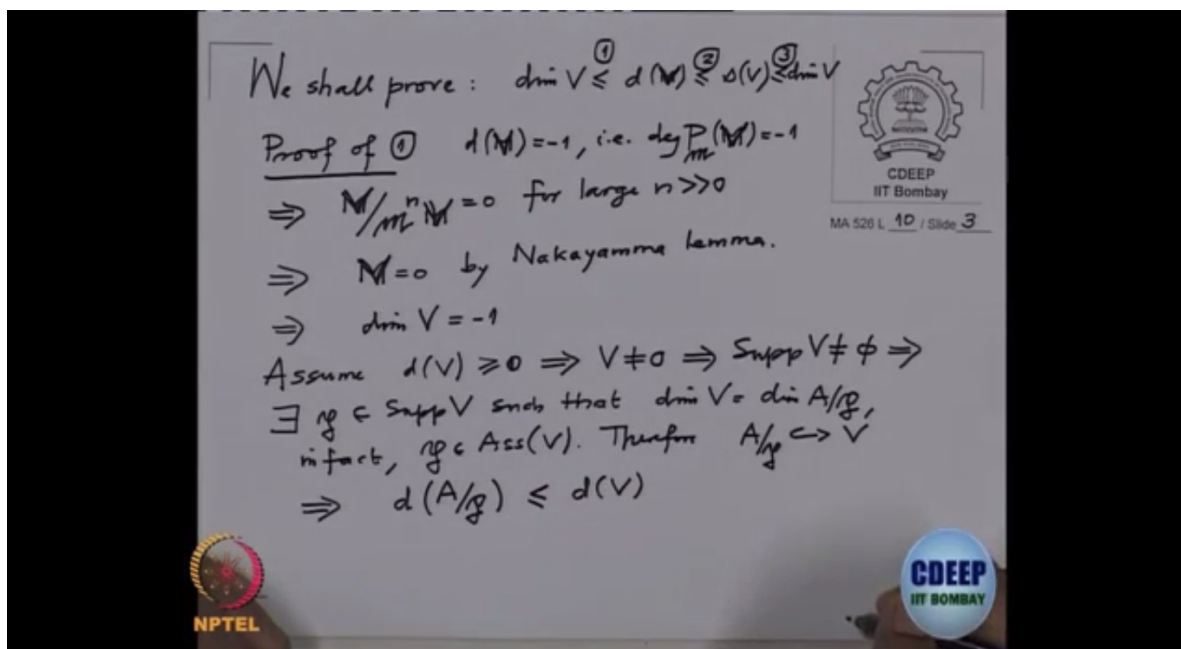 We shall prove : dim V ≤① d(V) ≤② s(V) ≤③ dim V
CDEEP
IIT Bombay
MA 526 L 10 / Slide 3
Proof of ① d(V)=-1, i.e. deg P_m(V)=-1
⇒ V/m^n V =0 for large n>>0
⇒ V=0 by Nakayamma Lemma.
⇒ dim V = -1
Assume d(V) ≥ 0 ⇒ V≠0 ⇒ Supp V ≠ ϕ ⇒
∃ 𝔭 ∈ Supp V such that dim V = dim A/𝔭,
infact, 𝔭 ∈ Ass(V). Therefore A/𝔭 ↪ V
⇒ d(A/𝔭) ≤ d(V)
NPTEL
CDEEP
IIT BOMBAY